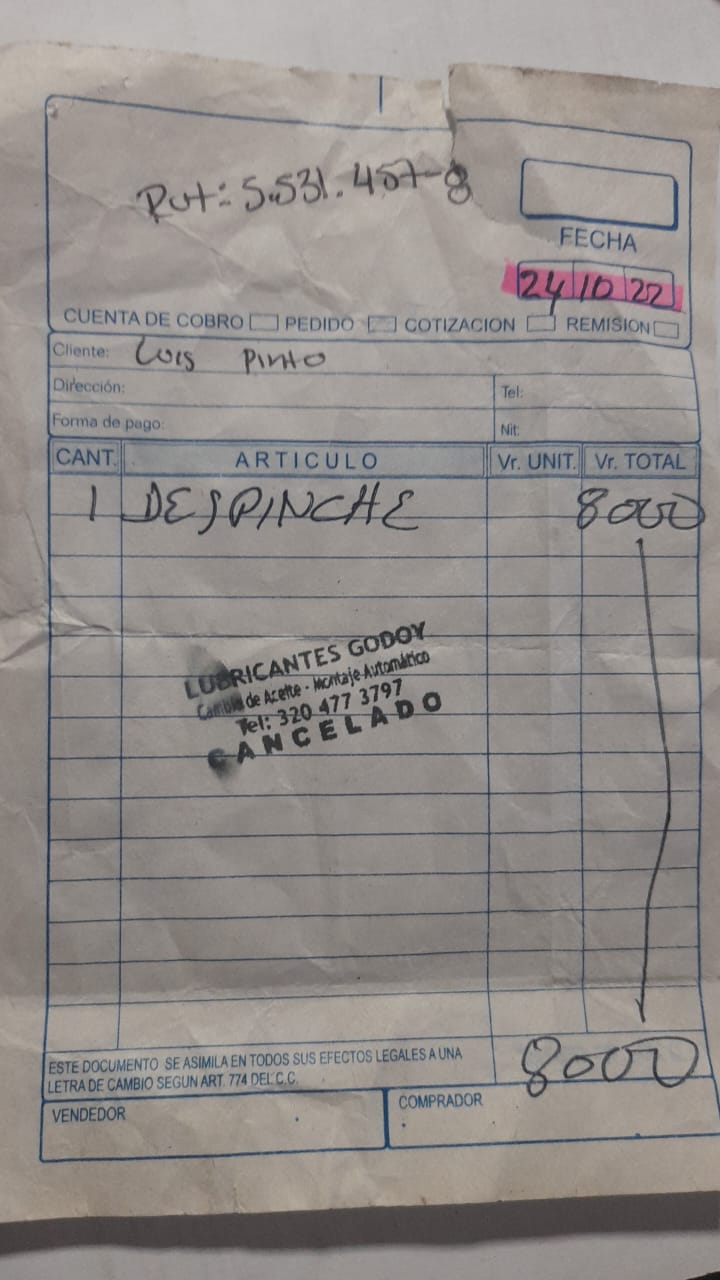 Rut: 5.531.457-8
FECHA
24 10 22
CUENTA DE COBRO PEDIDO COTIZACION REMISION
Cliente: Luis Pinto
Dirección: Tel:
Forma de pago: Nit:
CANT. ARTICULO Vr. UNIT. Vr. TOTAL
1 DESPINCHE 8000
LUBRICANTES GODOY
Cambio de Aceite - Montaje Automático
Tel: 320 477 3797
CANCELADO
8000
ESTE DOCUMENTO SE ASIMILA EN TODOS SUS EFECTOS LEGALES A UNA
LETRA DE CAMBIO SEGUN ART. 774 DEL C.C.
VENDEDOR COMPRADOR